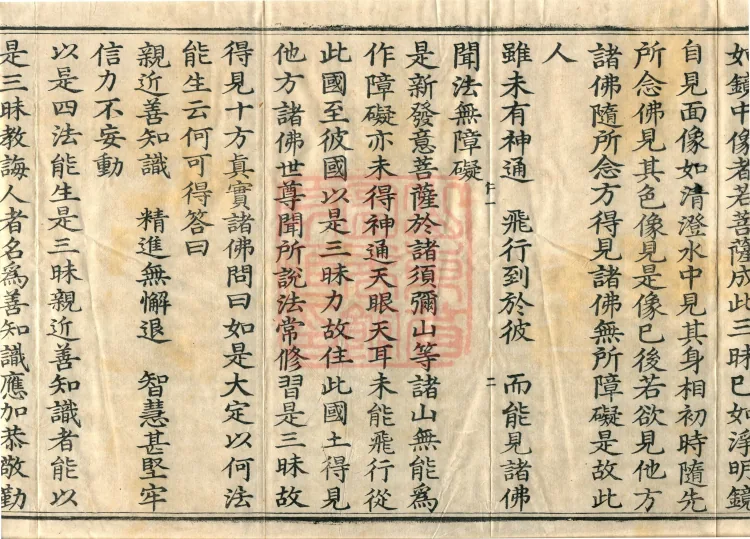 如鏡中像者若菩薩成此三昧已如淨明鏡
自見面像如清澄水中見其身相初時隨先
所念佛見其色像見是像已後若欲見他方
諸佛隨所念方得見諸佛無所障礙是故此
人
雖未有神通 飛行到於彼 而能見諸佛
聞法無障礙
是新發意菩薩於諸須彌山等諸山無能為
作障礙亦未得神通天眼天耳未能飛行從
此國至彼國以是三昧力故住此國土得見
他方諸佛世尊聞所說法常修習是三昧故
得見十方真實諸佛問曰如是大定以何法
能生云何可得答曰
親近善知識 精進無懈退 智慧甚堅牢
信力不妄動
以是四法能生是三昧親近善知識者能以
是三昧教誨人者名為善知識應加恭敬勤